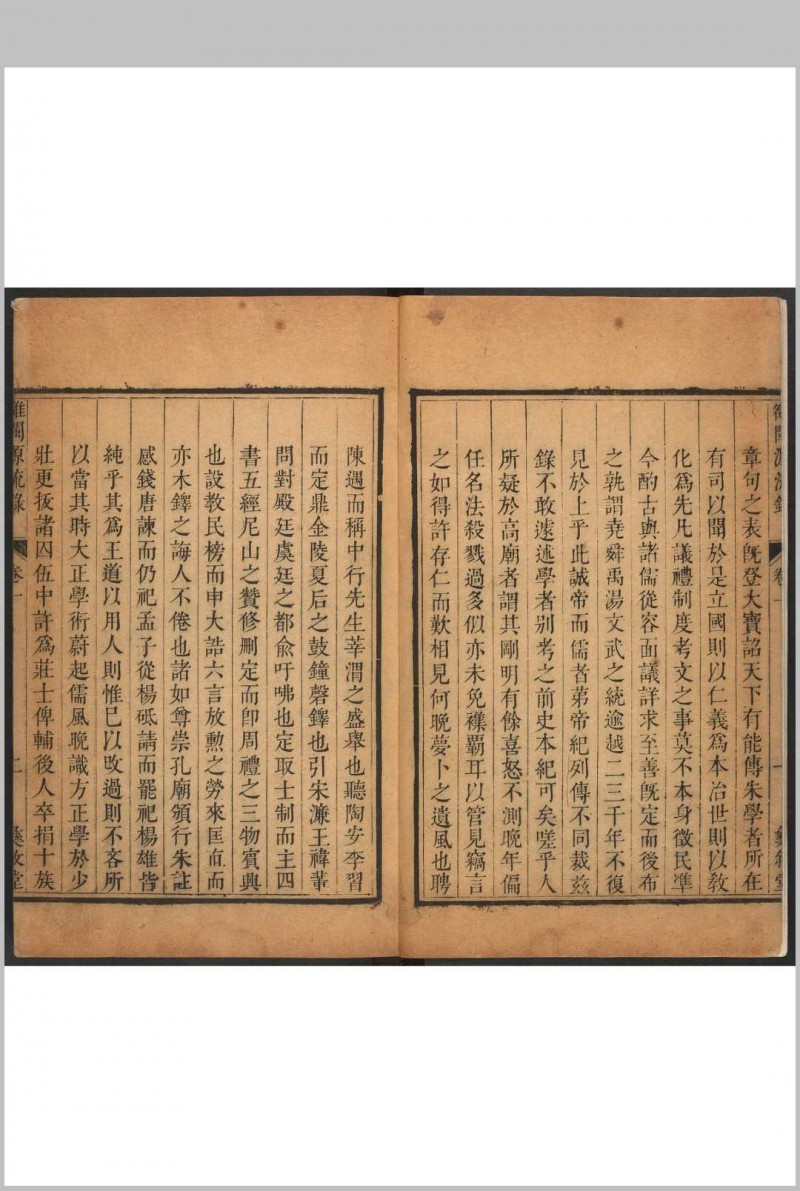 章句之表旣登大寶詔天下有能傳朱學者所在
有司以聞於是立國則以仁義爲本冶世則以敎
化爲先凡議禮制度考文之事莫不本身徵民準
今酌古與諸儒從容面議詳求至善旣定而後布
之孰謂堯舜禹湯文武之統逾越二三千年不復
見於上乎此誠帝而儒者第帝紀列傳不同裁茲
錄不敢遽述學者别考之前史本紀可矣嗟乎人
所疑於高廟者謂其剛明有餘喜怒不測晚年偏
任名法殺戮過多似亦未免襍霸耳以管見竊言
之如得許存仁而歎相見何晚夢卜之遺風也聘
陳遇而稱中行先生莘渭之盛舉也聽陶安李習
而定鼎金陵夏后之鼓鐘磬鐸也引朱濂王禕董
問對殿廷虞廷之都俞吁咈也定取士制而主四
書五經尼山之贊修刪定而卽周禮之三物賓興
也設教民榜而申大誥六言放勲之勞來匡直而
亦木鐸之誨人不倦也諸如尊崇孔廟頒行朱註
感錢唐諫而仍祀孟子從楊砥請而罷祀楊雄皆
純乎其爲王道以用人則惟已以攺過則不吝所
以當其時大正學術蔚起儒風晚識方正學於少
壯更扳諸囚伍中許爲莊士俾輔後人卒捐十族
雒閩源流錄
卷一
二
彝敘堂